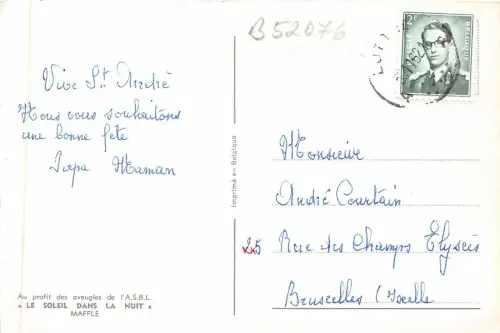 B52076
2F
BELGIQUE
Vive St André
Nous vous souhaitons
une bonne fête
Papa Maman
Imprimé en Belgique
Monsieur
André Courtain
25
Rue des Champs Elysées
Bruxelles (Ixelle
Au profit des aveugles de l'A.S.B.L.
« LE SOLEIL DANS LA NUIT »
MAFFLE